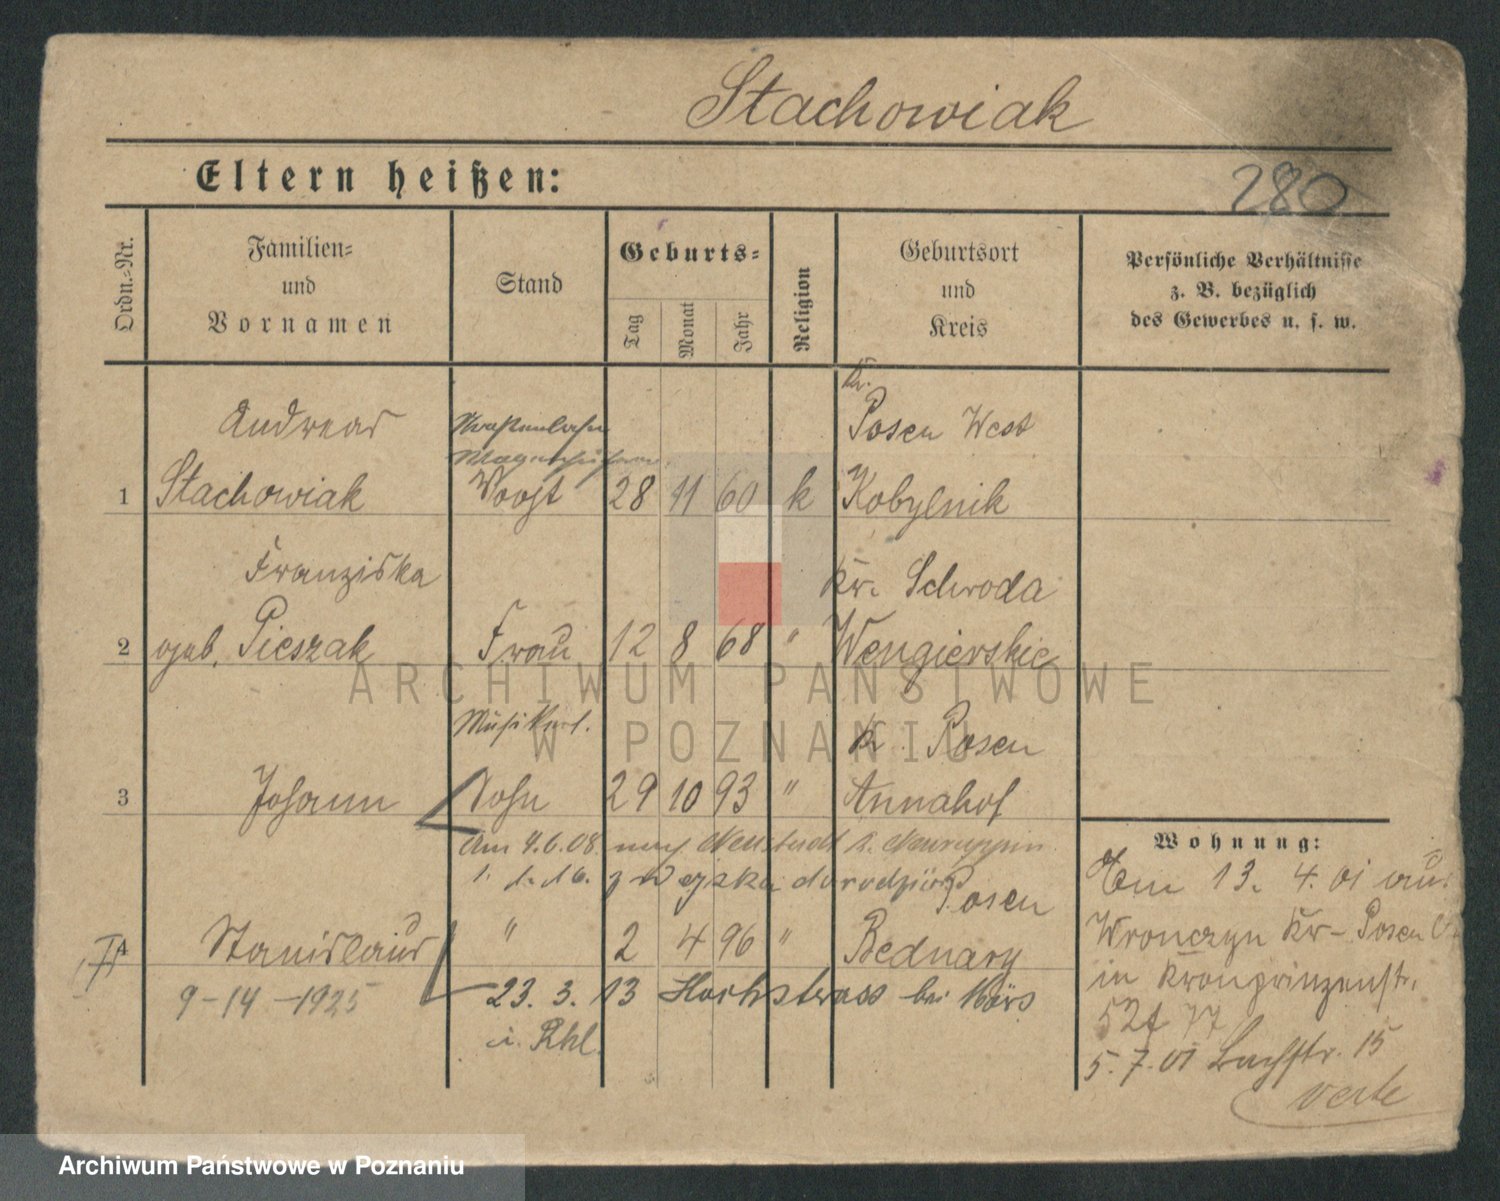 Stachowiak
Eltern heißen:
280
Ordn.=Nr.
Familien=
und
Vornamen
Stand
Geburts=
Tag
Monat
Jahr
Religion
Geburtsort
und
Kreis
Persönliche Verhältnisse
z. B. bezüglich
des Gewerbes u. s. w.
Kr.
Andreas
Posen West
1 Stachowiak Voogt 28 11 60 k Kobylnik
Franziska
Kr. Schroda
2 geb. Pieszak Frau 12 8 68 " Wengierskie
ARCHIWUM PAŃSTWOWE
W POZNANIU
Kr. Posen
3 Johann Sohn 29 10 93 " Annahof
Am 4.6.08. nach Neustadt b. Neuruppin
Posen
4 Stanislaus " 2 4 96 " Bednary
9-14-1925
23. 3. 13 Hochstrass bei Mörs
i. Rhl.
Wohnung:
Am 13. 4. 01 aus
Wronczyn Kr- Posen O.
in Kronprinzenstr.
5.7.01 Bachstr. 15
verte
Archiwum Państwowe w Poznaniu